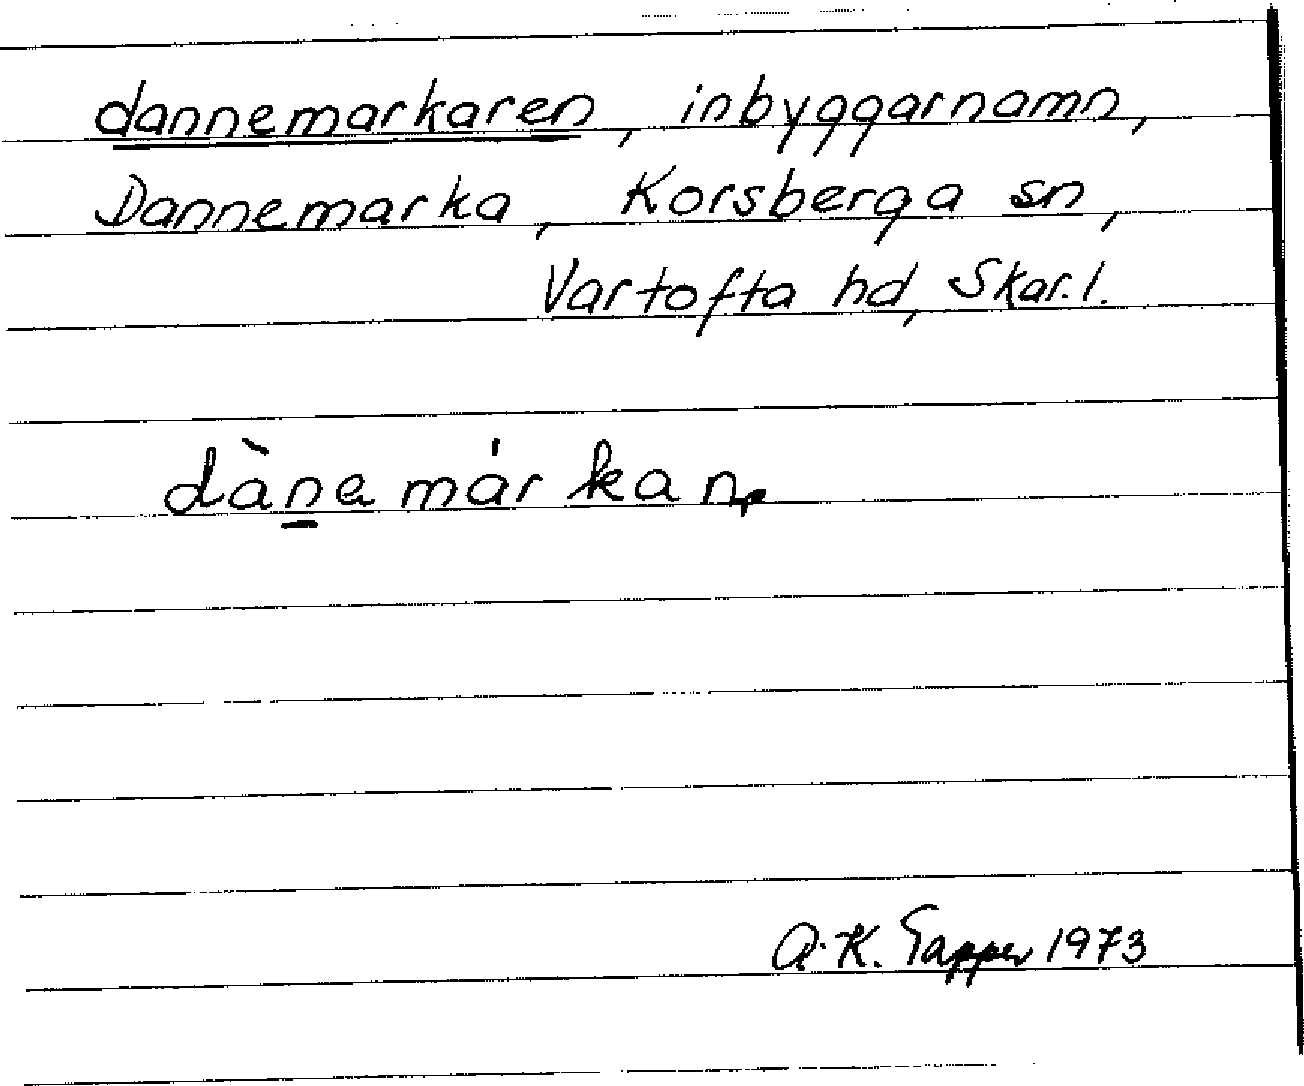 dannemarkaren, inbyggarnamn,
Dannemarka, Korsberga sn,
Vartofta hd, Skar.l.
dànamárkan
A.K. Tapper 1973